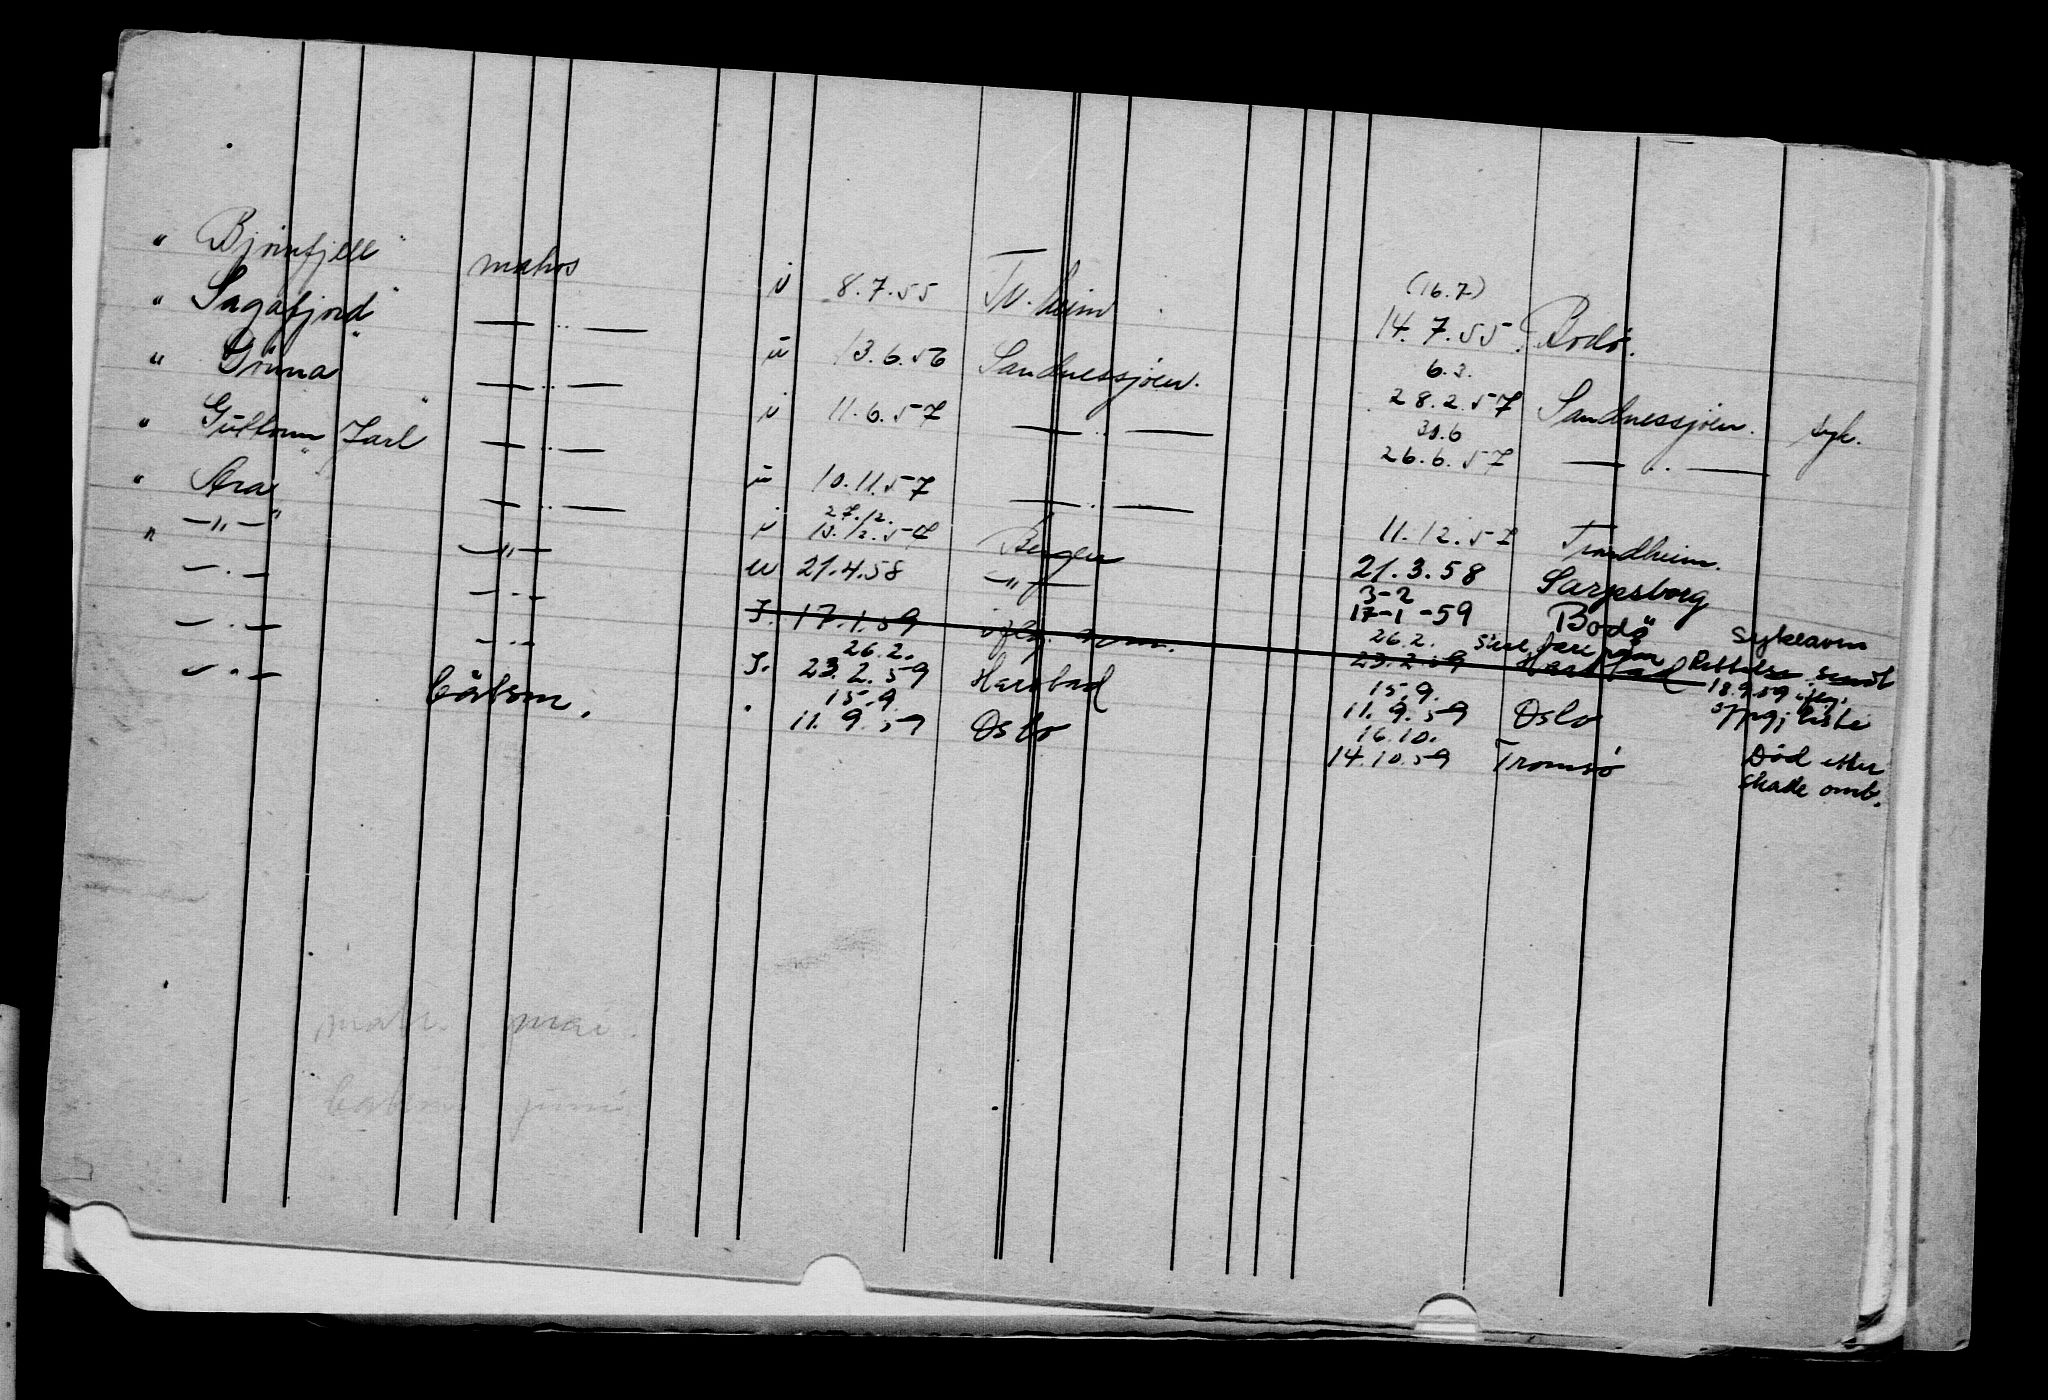 " Bjørnfjell" matros u 8.7.55 Tr.heim (16.7) 14.7.55 Bodø.
" Sagafjord" — " — u 13.6.56 Sandnessjøen. 6.3. 28.2.57 Sandnessjøen. syk.
" Tönna" — " — u 11.6.57 — " — 30.6 26.6.57 — " —
" Guttorm Jarl" — " — u 10.11.57 — " — 11.12.57 Trondheim.
" Ara" — " — u 27.12. 13.12.57 Bergen 21.3.58 Sarpsborg
" —"—" —"— u 21.4.58 —"— 3-2 17-1-59 Bodö sykeavm
— " — — " — I. 17.1.59 26.2. 23.2.59 Harstad Rettelse sendt 18.9.59
— " — — " — I. 26.2. 23.2.59 Harstad 15.9. 11.9.59 Oslo oppgj liste
— " — båtsm. " 15.9. 11.9.59 Oslo 16.10. 14.10.59 Tromsö Død etter
skade omb.
matr. mai
båtsm juni